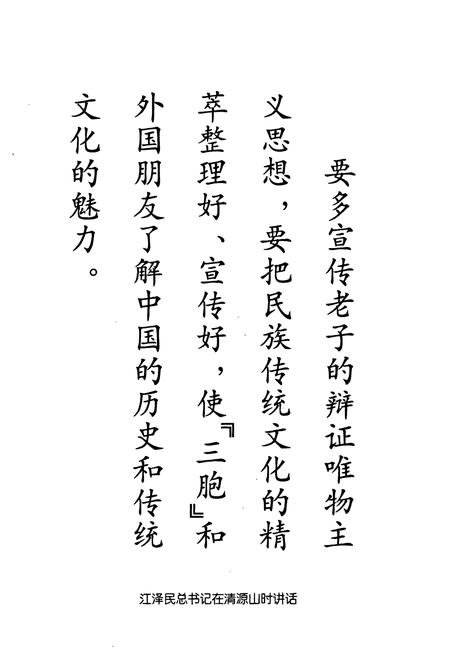 要多宣传老子的辩证唯物主
义思想，要把民族传统文化的精
萃整理好、宣传好，使『三胞』和
外国朋友了解中国的历史和传统
文化的魅力。
江泽民总书记在清源山时讲话